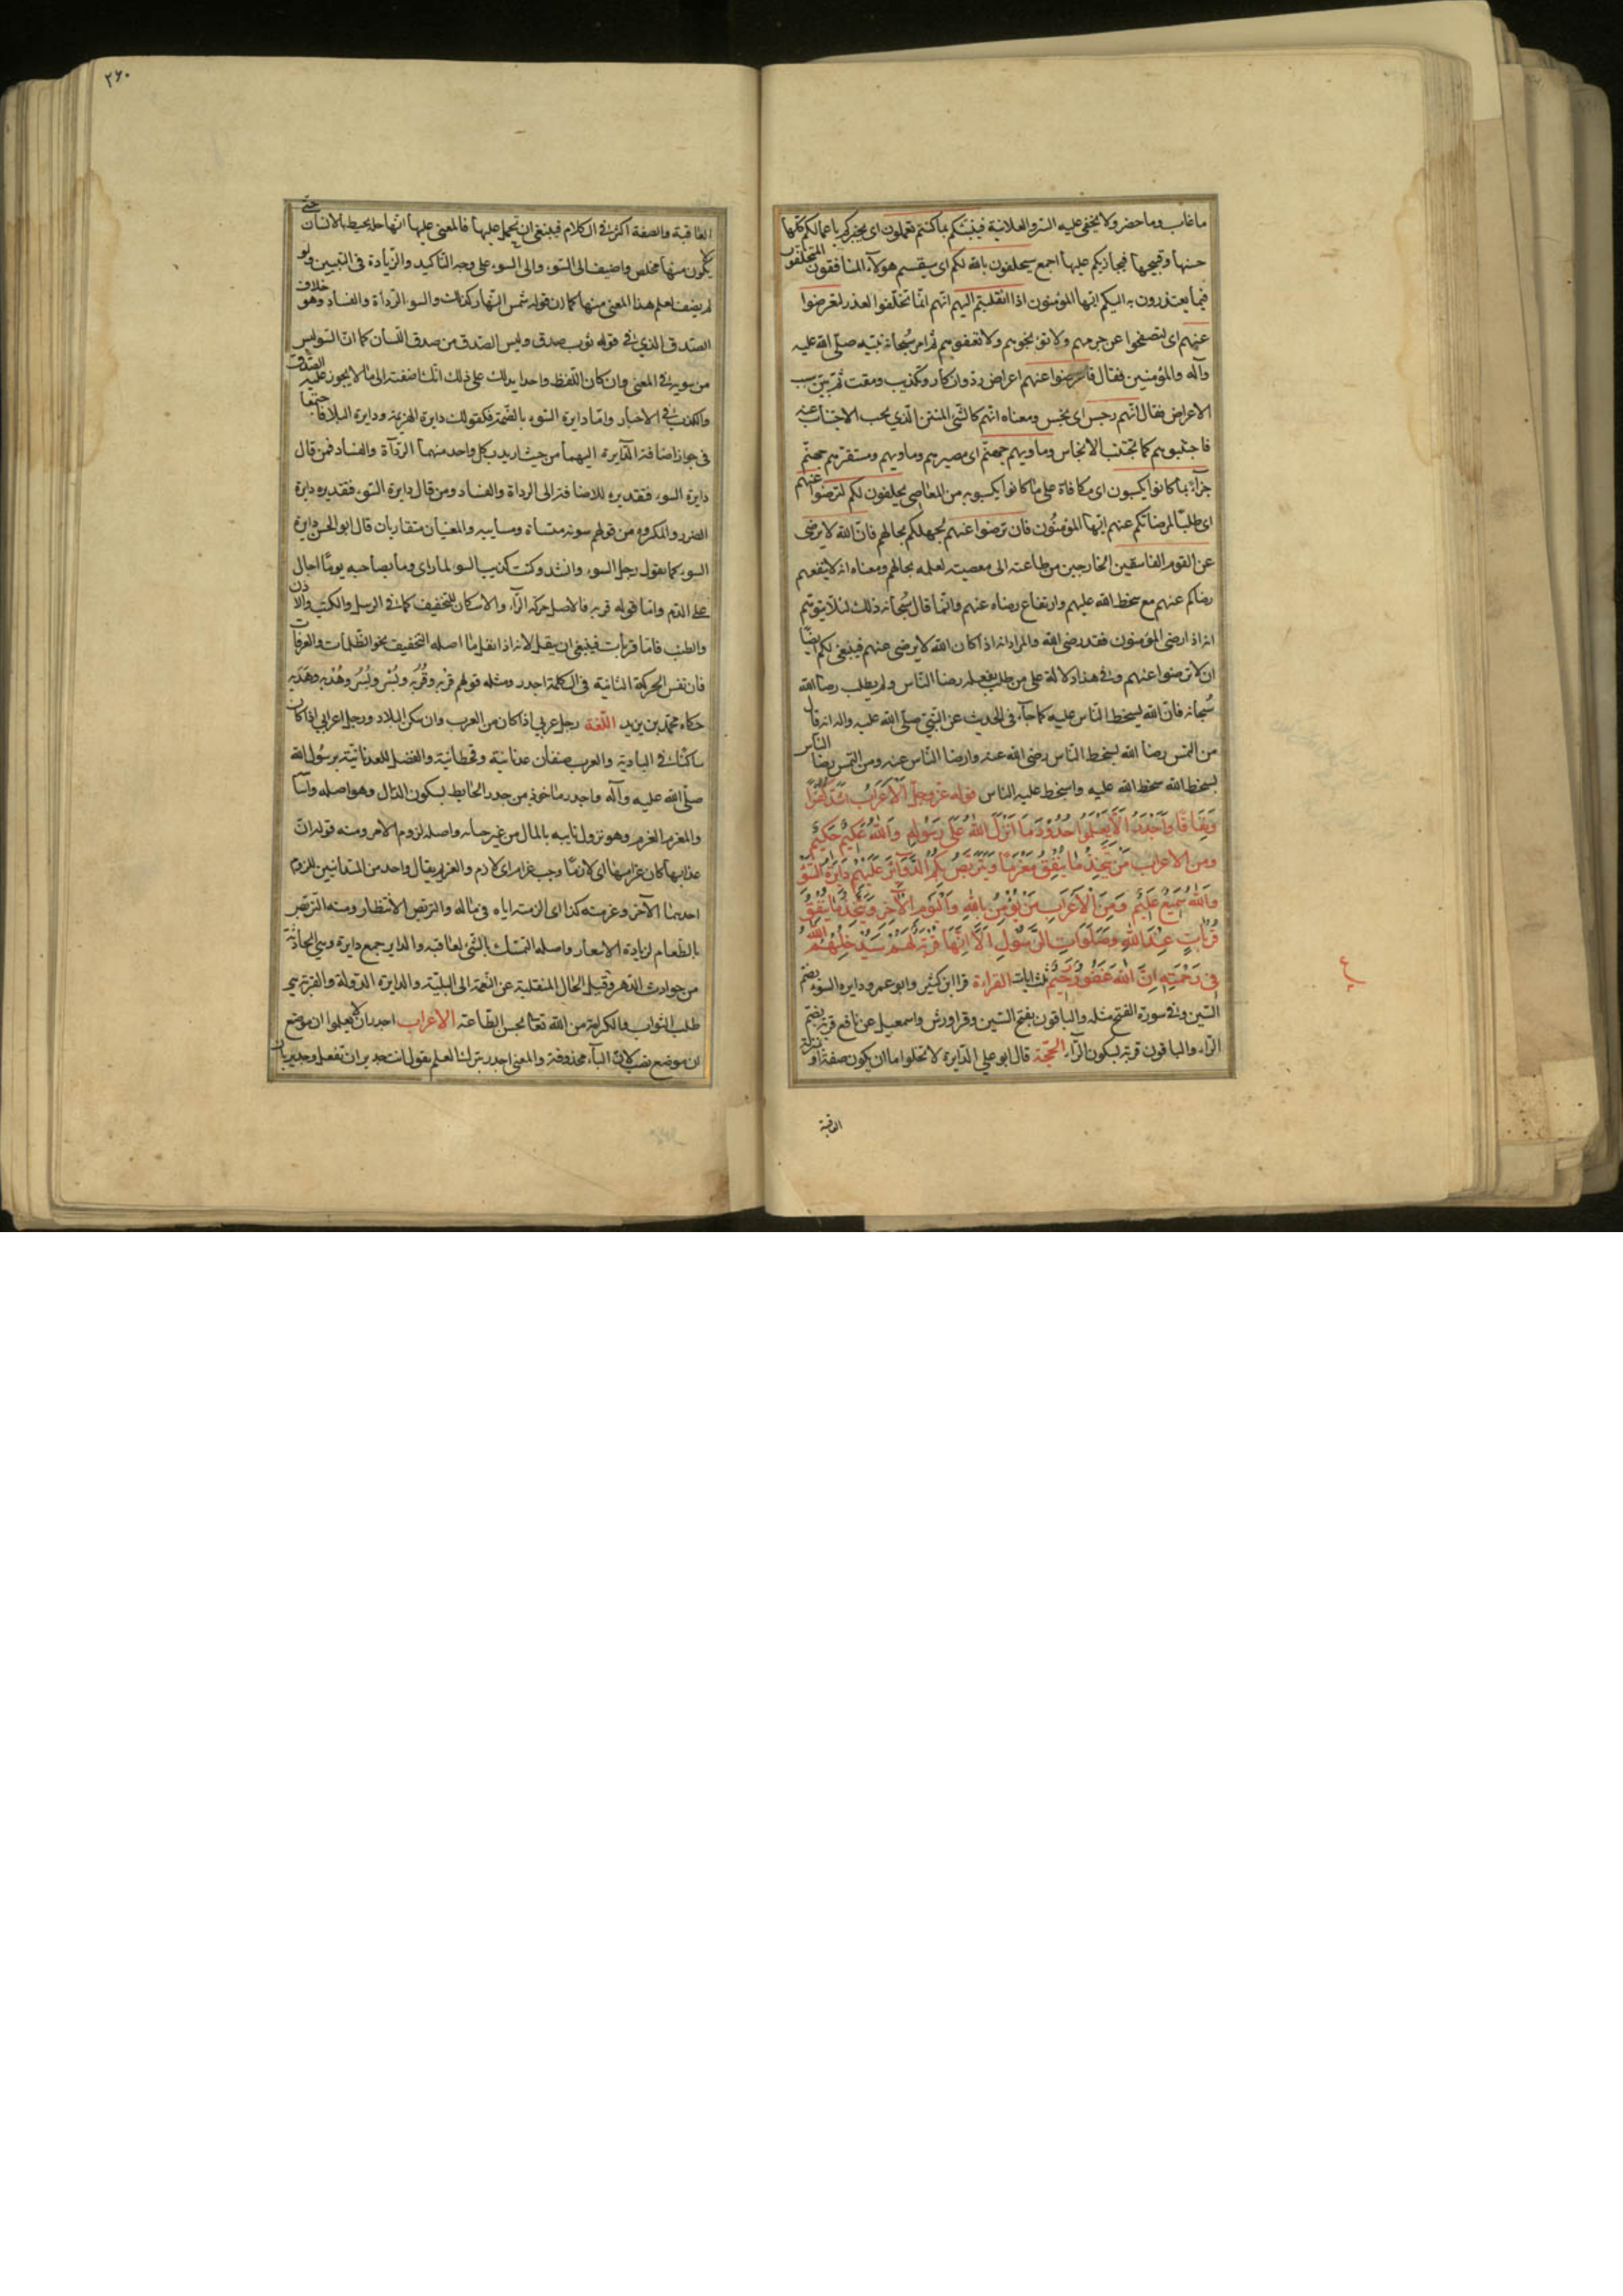 ما غاب وما حضر ولا يخفى عليه السر والعلانية فينبئكم بما كنتم تعملون اى يخبركم باعمالكم كلها
حسنها وقبيحها فيجازيكم عليها اجمع سيحلفون بالله لكم اى سيقسم هولاء المنافقون المتخلفون
فيما يعتذرون به اليكم ايها المؤمنون اذا انقلبتم اليهم انهم انما تخلفوا لعذر لتعرضوا
عنهم اى لتصفحوا عن جرمهم ولا توبخوهم ولا تعنفوهم ثم امر سبحانه نبيه صلى الله عليه
وآله والمؤمنين فقال فاعرضوا عنهم اعراض رد وانكار وتكذيب ومقت ثم بين سبب
الاعراض فقال انهم رجس اى نجس ومعناه انهم كالشئ المنتن الذي يجب الاجتناب عنه
فاجتنبوهم كما تجتنب الانجاس وماويهم جهنم اى مصيرهم وماويهم ومستقرهم جهنم
جزآء بما كانوا يكسبون اى مكافاة على ما كانوا يكسبونه من المعاصى يحلفون لكم لترضوا عنهم
اى طلبا لمرضاتكم عنهم ايها المؤمنون فان ترضوا عنهم لجهلكم بحالهم فان الله لا يرضى
عن القوم الفاسقين الخارجين من طاعته الى معصيته لعلمه بحالهم ومعناه انه لا ينفعهم
رضاكم عنهم مع سخط الله عليهم وارتفاع رضاه عنهم وانما قال سبحانه ذلك لئلا يتوهم
انه اذا رضى المؤمنون فقد رضى الله والمراد انه اذا كان الله لا يرضى عنهم فينبغى لكم ايضا
ان لا ترضوا عنهم وفي هذا دلالة على من طلب بفعله رضا الناس ولم يطلب رضا الله
سبحانه فان الله يسخط الناس عليه كما جآء فى الحديث عن النبي صلى الله عليه واله انه قال
من التمس رضا الله بسخط الناس رضى الله عنه وارضا الناس عنه ومن التمس رضا الناس
بسخط الله سخط الله عليه واسخط عليه الناس قوله عز وجل اَلْاَعْرَابُ اَشَدُّ كُفْرًا
وَنِفَاقًا وَاَجْدَرُ اَلَّا يَعْلَمُوا حُدُودَ مَا اَنْزَلَ اللهُ عَلَى رَسُولِهِ وَاللهُ عَلِيمٌ حَكِيمٌ
ومن الاعراب مَنْ يَتَّخِذُ مَا يُنْفِقُ مَغْرَمًا وَيَتَرَبَّصُ بِكُمُ الدَّوَائِرَ عَلَيْهِمْ دَايِرَةُ السَّوْءِ
وَاللهُ سَمِيعٌ عَلِيمٌ وَمِنَ الْاَعْرَابِ مَنْ يُؤْمِنُ بِاللهِ وَالْيَوْمِ الْآخِرِ وَيَتَّخِذُ مَا يُنْفِقُ
قُرُبَاتٍ عِنْدَ اللهِ وَصَلَوَاتِ الرَّسُولِ اَلَا اِنَّهَا قُرْبَةٌ لَهُمْ سَيُدْخِلُهُمُ اللهُ
فِى رَحْمَتِهِ اِنَّ اللهَ غَفُورٌ رَحِيمٌ ثلث ايات القراءة قرا ابن كثير وابو عمرو دايره السوء بضم
السين وفي سورة الفتح مثله والباقون بفتح السين وقرا ورش واسمعيل عن نافع قربة بضم
الرآء والباقون قربة بسكون الرآء الحجة قال ابو على الدايرة لا تخلوا اما ان يكون صفة او بمنزلة
العاقبة
٢٦٠
العاقبة والصفة اكثر في الكلام فينبغى ان تحمل عليها فالمعنى عليها انها حال يحيط بالانسان حتى
لا يكون منها مخلص واضيف الى السوء والى السوء على وجه التاكيد والزيادة فى التبيين ولو
لم يضف لعلم هذا المعنى منها كما ان قوله شمس النهار كذلك والسوء الرداءة والفساد وهو خلاف
الصدق الذي في قوله ثوب صدق وليس الصدق من صدق اللسان كما ان السوء ليس
من سويه في المعنى وان كان اللفظ واحدا يدلك على ذلك انك اضفته الى ما لا يجوز عليه الصدق
والكذب في الاخبار واما دايرة السوء بالضم فكقولك دايرة الهزيمة ودايرة البلاء فاجتمعا
فى جواز اضافة الدآيرة اليهما من حيث اريد بكل واحد منهما الرداءة والفساد فمن قال
دايرة السوء فتقديره للاضافة الى الرداءة والفساد ومن قال دايرة السوء فتقديره دايرة
الضرر والمكروه من قولهم سوته مساءة ومسايية والمعنيان متقاربان قال ابو الحسن دايرة
السوء كما يقول رجل السوء وانشد وكنت كذيب السوء لما راى دما بصاحبه يوما احال
على الدم واما قوله قربه فالاصل حركة الرآء والاسكان للتخفيف كما في الرسل والكتب والاذن
والطنب فاما قربات فينبغى ان يثقل لانه اذا ثقل ما اصله التخفيف نحو الظلمات والغرفات
فان نفس الحركة الثانية فى الكلمة اجدر ومثله قولهم قربة وقُرُبة ويُسْر ويُسُر وهُدْبة وهُدُبة
حكاه محمد بن يزيد اللغة رجل عربي اذا كان من العرب وان سكن البلاد ورجل اعرابي اذا كان
ساكنا في البادية والعرب صنفان عدنانية وقحطانية والفضل للعدنانية برسول الله
صلى الله عليه وآله واجدر ماخوذ من جدر الحايط بسكون الدال وهو اصله واساسه
والمغرم الغرم وهو نزول نايبه بالمال من غير جنايه واصله لزوم الامر ومنه قوله ان
عذابها كان غراما اى لازما وحب غرام اى لازم والغريم يقال لواحد من المتدانيين للزوم
احدهما الآخر وغرمته كذا اى الزمته اياه فى ماله والتربص الانتظار ومنه التربص
بالطعام لزيادة الاسعار واصله التمسك بالشئ لعاقبه والداير جمع دايرة وهى الحادثة
من حوادث الدهر وقيل الحال المنقلبة عن النعمة الى البلية والدايرة الدولة والقربة هى
طلب الثواب والكرامة من الله تعالى بحسن الطاعة الاعراب اجدر ان لا يعلموا ان موضع
ان موضع نصب لان البآء محذوفة والمعنى اجدر بترك العلم يقول انت جدير ان تفعل وجدير بان